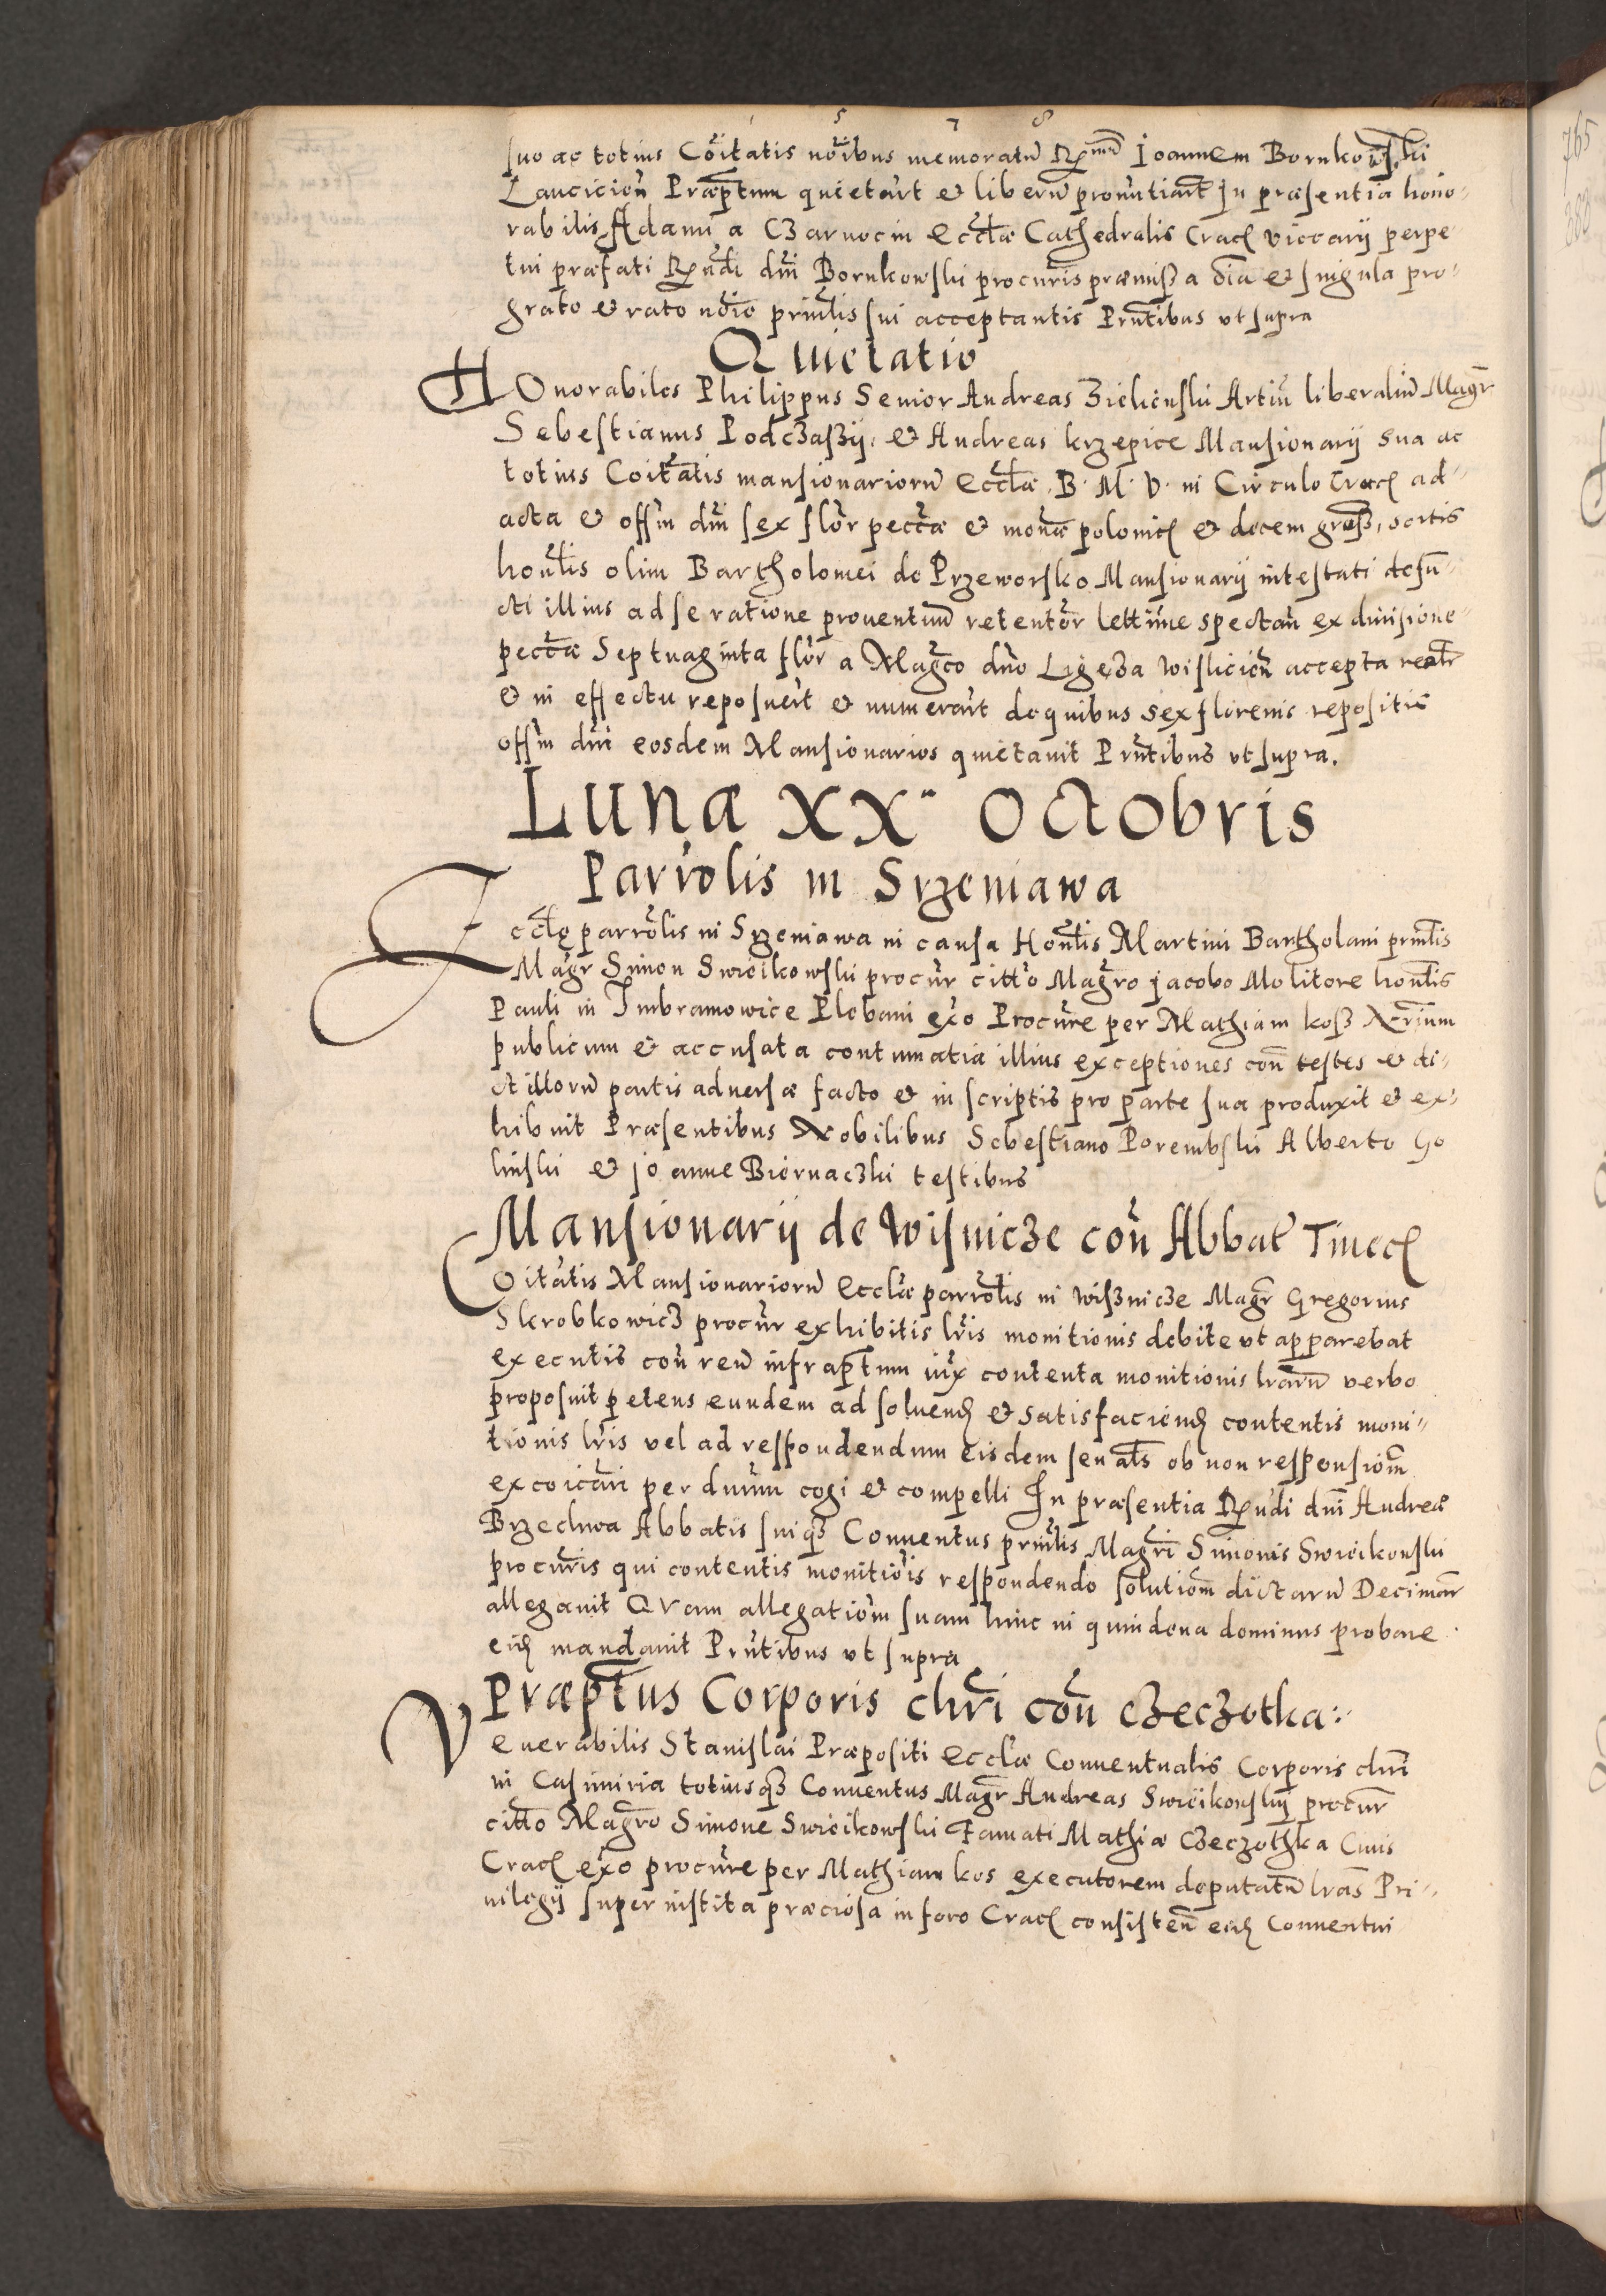 1 5 7 8
suo ac totius Cõitatis nõibus memoratũ Rmũ Joannem Bornkowski
Lancicieñ Præptum quietart et liberũ pronũtiart In præsentia hono-
rabilis Adami a Czarnocin Ecctæ Cathedralis Crac viccarij perpe
tui præfati Rndi dni Bornkowski procuris præmissa oĩa et singula pro-
grato et rato nõie prinlis sui acceptantis Prntibus vt supra
Quietatio
HOnorabiles Philippus Senior Andreas Zielienski Artiũ liberaliũ Magr
Sebestianus Podczaszij et Andreas krzepice Mansionarij sua ac
totius Coitatis mansionariorũ Ecctæ B. M. V. in Circulo Crac ad-
acta et offm dni sex flor pecctæ et monæ polonic et decem gross, sortis
honlis olim Bartholomei de Przeworsko Mansionarij intestati defũ-
cti illius ad se ratione prouentuũ retentor lettime spectañ ex diuisione
pecctæ Septuaginta flor a Magco dno Ligęza wislicień accepta realr
et in effectu reposuert et numerart de quibus sex florenis repositis
offm dni eosdem Mansionarios quietauit Prntibus vt supra.
Luna XX octobris
Parrolis in Srzeniawa
Ecctę parrolis in Srzeniawa in causa Honlis Martini Bartholani prinlis
Magr Simon Swieikowski procur citto Magro Jacobo Molitore honlis
Pauli in Imbramowice Plebani exo Procure per Mathiam koss Nrium
publicum et accusata contumatia illius exceptiones con testes et di-
ct illorũ partis aduersæ facto et in scriptis pro parte sua produxit et ex-
hibuit Præsentibus Nobilibus Sebestiano Porembski Alberto Go
linski et joanne Biernaczki testibus
Mansionarij de Wisnicze coñ Abbat Tinec
Coitatis Mansionariorũ Ecclæ parrolis in Wisznicze Magr Gregorius
Skrobkowicz procur exhibitis lris monitionis debite vt apparebat
executis coñ reũ infraptum iux contenta monitionis lrarũ verbo
proposuit petens eundem ad soluend et satisfaciend contentis moni-
tionis lris vel ad respondendum eisdem seu als ob non responsiom
excoicari per dnum cogi et compelli In præsentia Rndi dni Andreæ
Brzechwa Abbatis suiqz Conuentus prinlis Magri Simonis Swieikowski
procuris qui contentis monitiois respondendo solutiom dictarũ Decimar
allegauit Quam allegatiom suam hinc in quindena dominus probare
eid mandauit Prntibus vt supra
Præptus Corporis chri coñ czeczotka:
Venerabilis Stanislai Præpositi Ecclæ Conuentualis Corporis chri
in Casimiria totiusqz Conuentus Magr Andreas Swieikowskij procur
citto Magro Simone Swieikowski Famati Mathiæ Czeczothka Ciuis
Crac exo procure per Mathiam kos executorem deputatũ lras Pri-
uilegij super institta præciosa in foro Crac consisteñ eid Conuentui
765
383